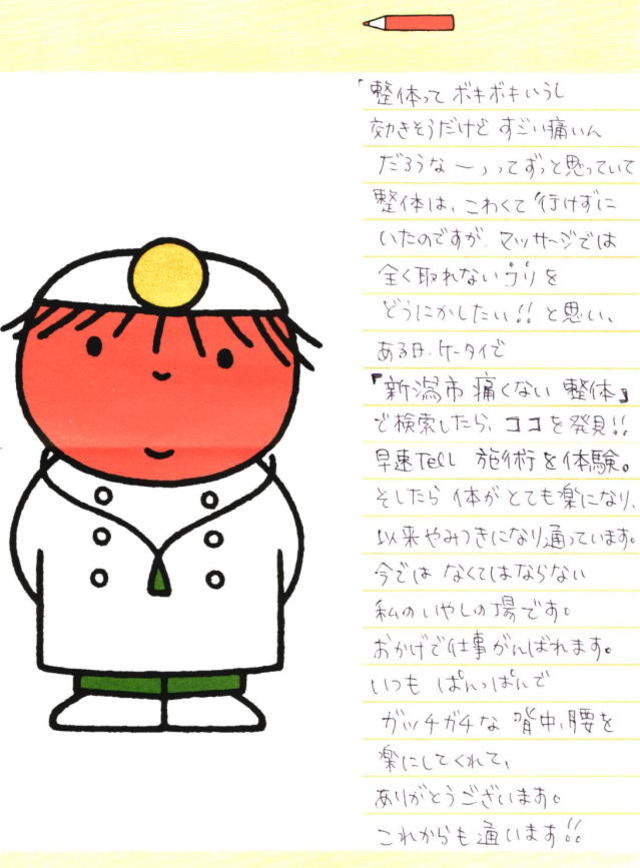 「整体って ボキボキいうし
効きそうだけど すごい痛いん
だろうなー」ってずっと思っていて
整体は、こわくて行けずに
いたのですが、マッサージでは
全く取れないコリを
どうにかしたい!!と思い、
ある日、ケータイで
『新潟市 痛くない 整体』
で検索したら、ココを発見!!
早速Tell 施術を体験。
そしたら 体が とても楽になり、
以来やみつきになり通っています。
今では なくてはならない
私のいやしの場です。
おかげで仕事がんばれます。
いつも ぱんっぱんで
ガッチガチな 背中、腰を
楽にしてくれて、
ありがとうございます。
これからも通います!!